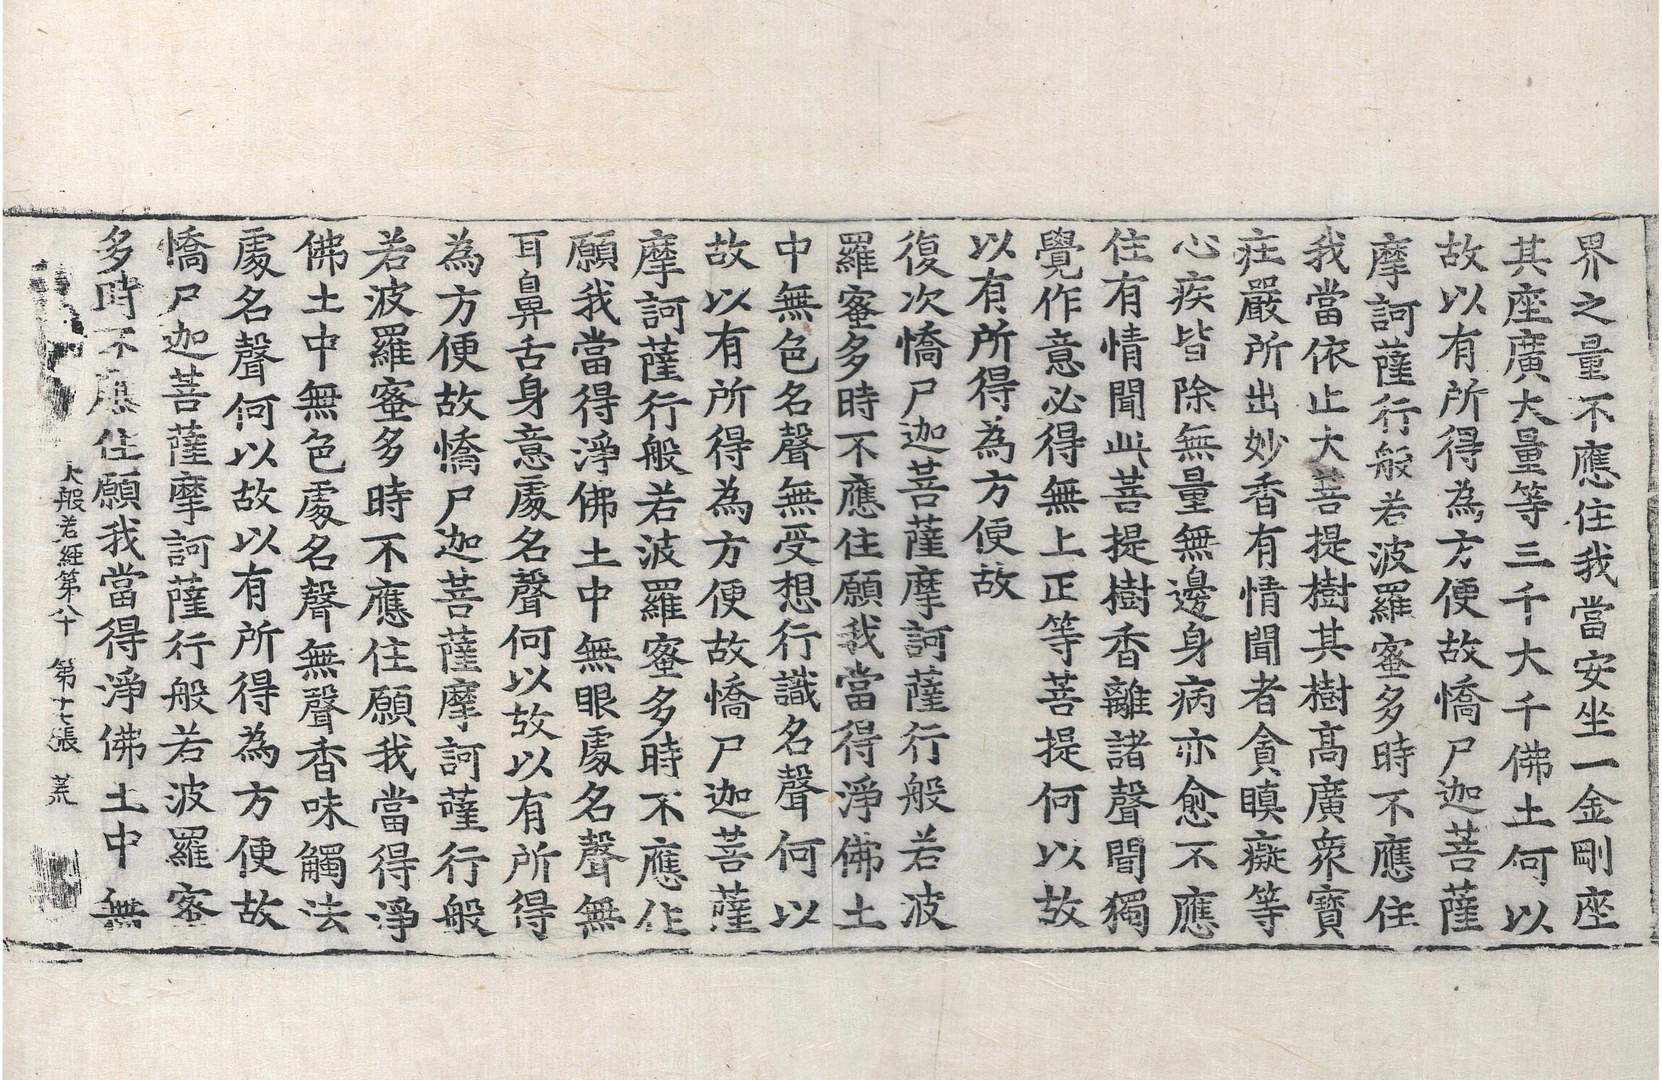 界之量不應住我當安坐一金剛座
其座廣大量等三千大千佛土何以
故以有所得為方便故憍尸迦菩薩
摩訶薩行般若波羅蜜多時不應住
我當依止大菩提樹其樹高廣衆寶
莊嚴所出妙香有情聞者貪瞋癡等
心疾皆除無量無邊身病亦愈不應
住有情聞此菩提樹香離諸聲聞獨
覺作意必得無上正等菩提何以故
以有所得為方便故
復次憍尸迦菩薩摩訶薩行般若波
羅蜜多時不應住願我當得淨佛土
中無色名聲無受想行識名聲何以
故以有所得為方便故憍尸迦菩薩
摩訶薩行般若波羅蜜多時不應住
願我當得淨佛土中無眼處名聲無
耳鼻舌身意處名聲何以故以有所得
為方便故憍尸迦菩薩摩訶薩行般
若波羅蜜多時不應住願我當得淨
佛土中無色處名聲無聲香味觸法
處名聲何以故以有所得為方便故
憍尸迦菩薩摩訶薩行般若波羅蜜
多時不應住願我當得淨佛土中無
大般若經第八十 第十七張 荒